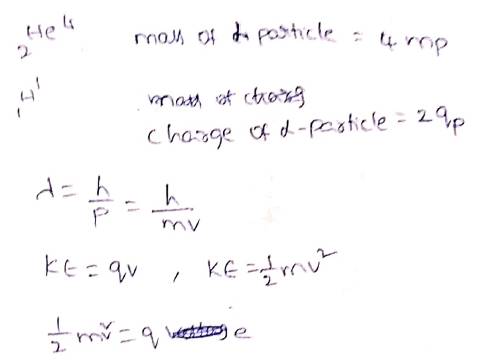 ₂He⁴ mass of α particle = 4 mp
₁H¹ mass of charg
charge of α-particle = 2qp
λ = h/p = h/mv
KE = qv , KE = 1/2 mv²
1/2 mv² = q e